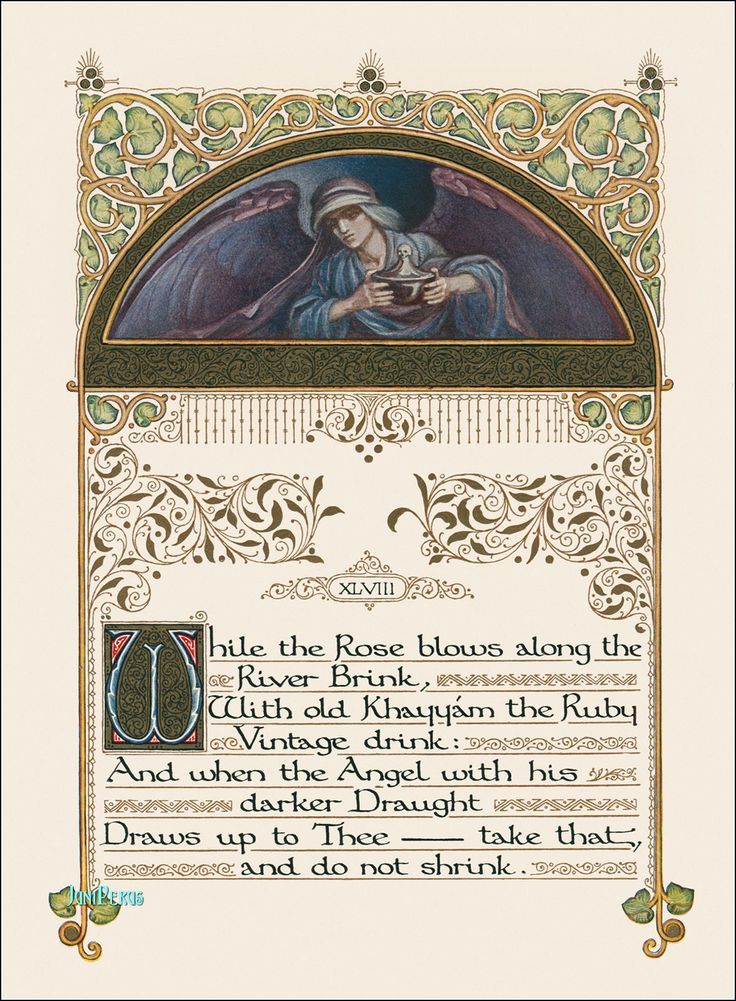 XLVIII
While the Rose blows along the
River Brink,
With old Khayyám the Ruby
Vintage drink:
And when the Angel with his
darker Draught
Draws up to Thee — take that,
and do not shrink.
JuniPerus